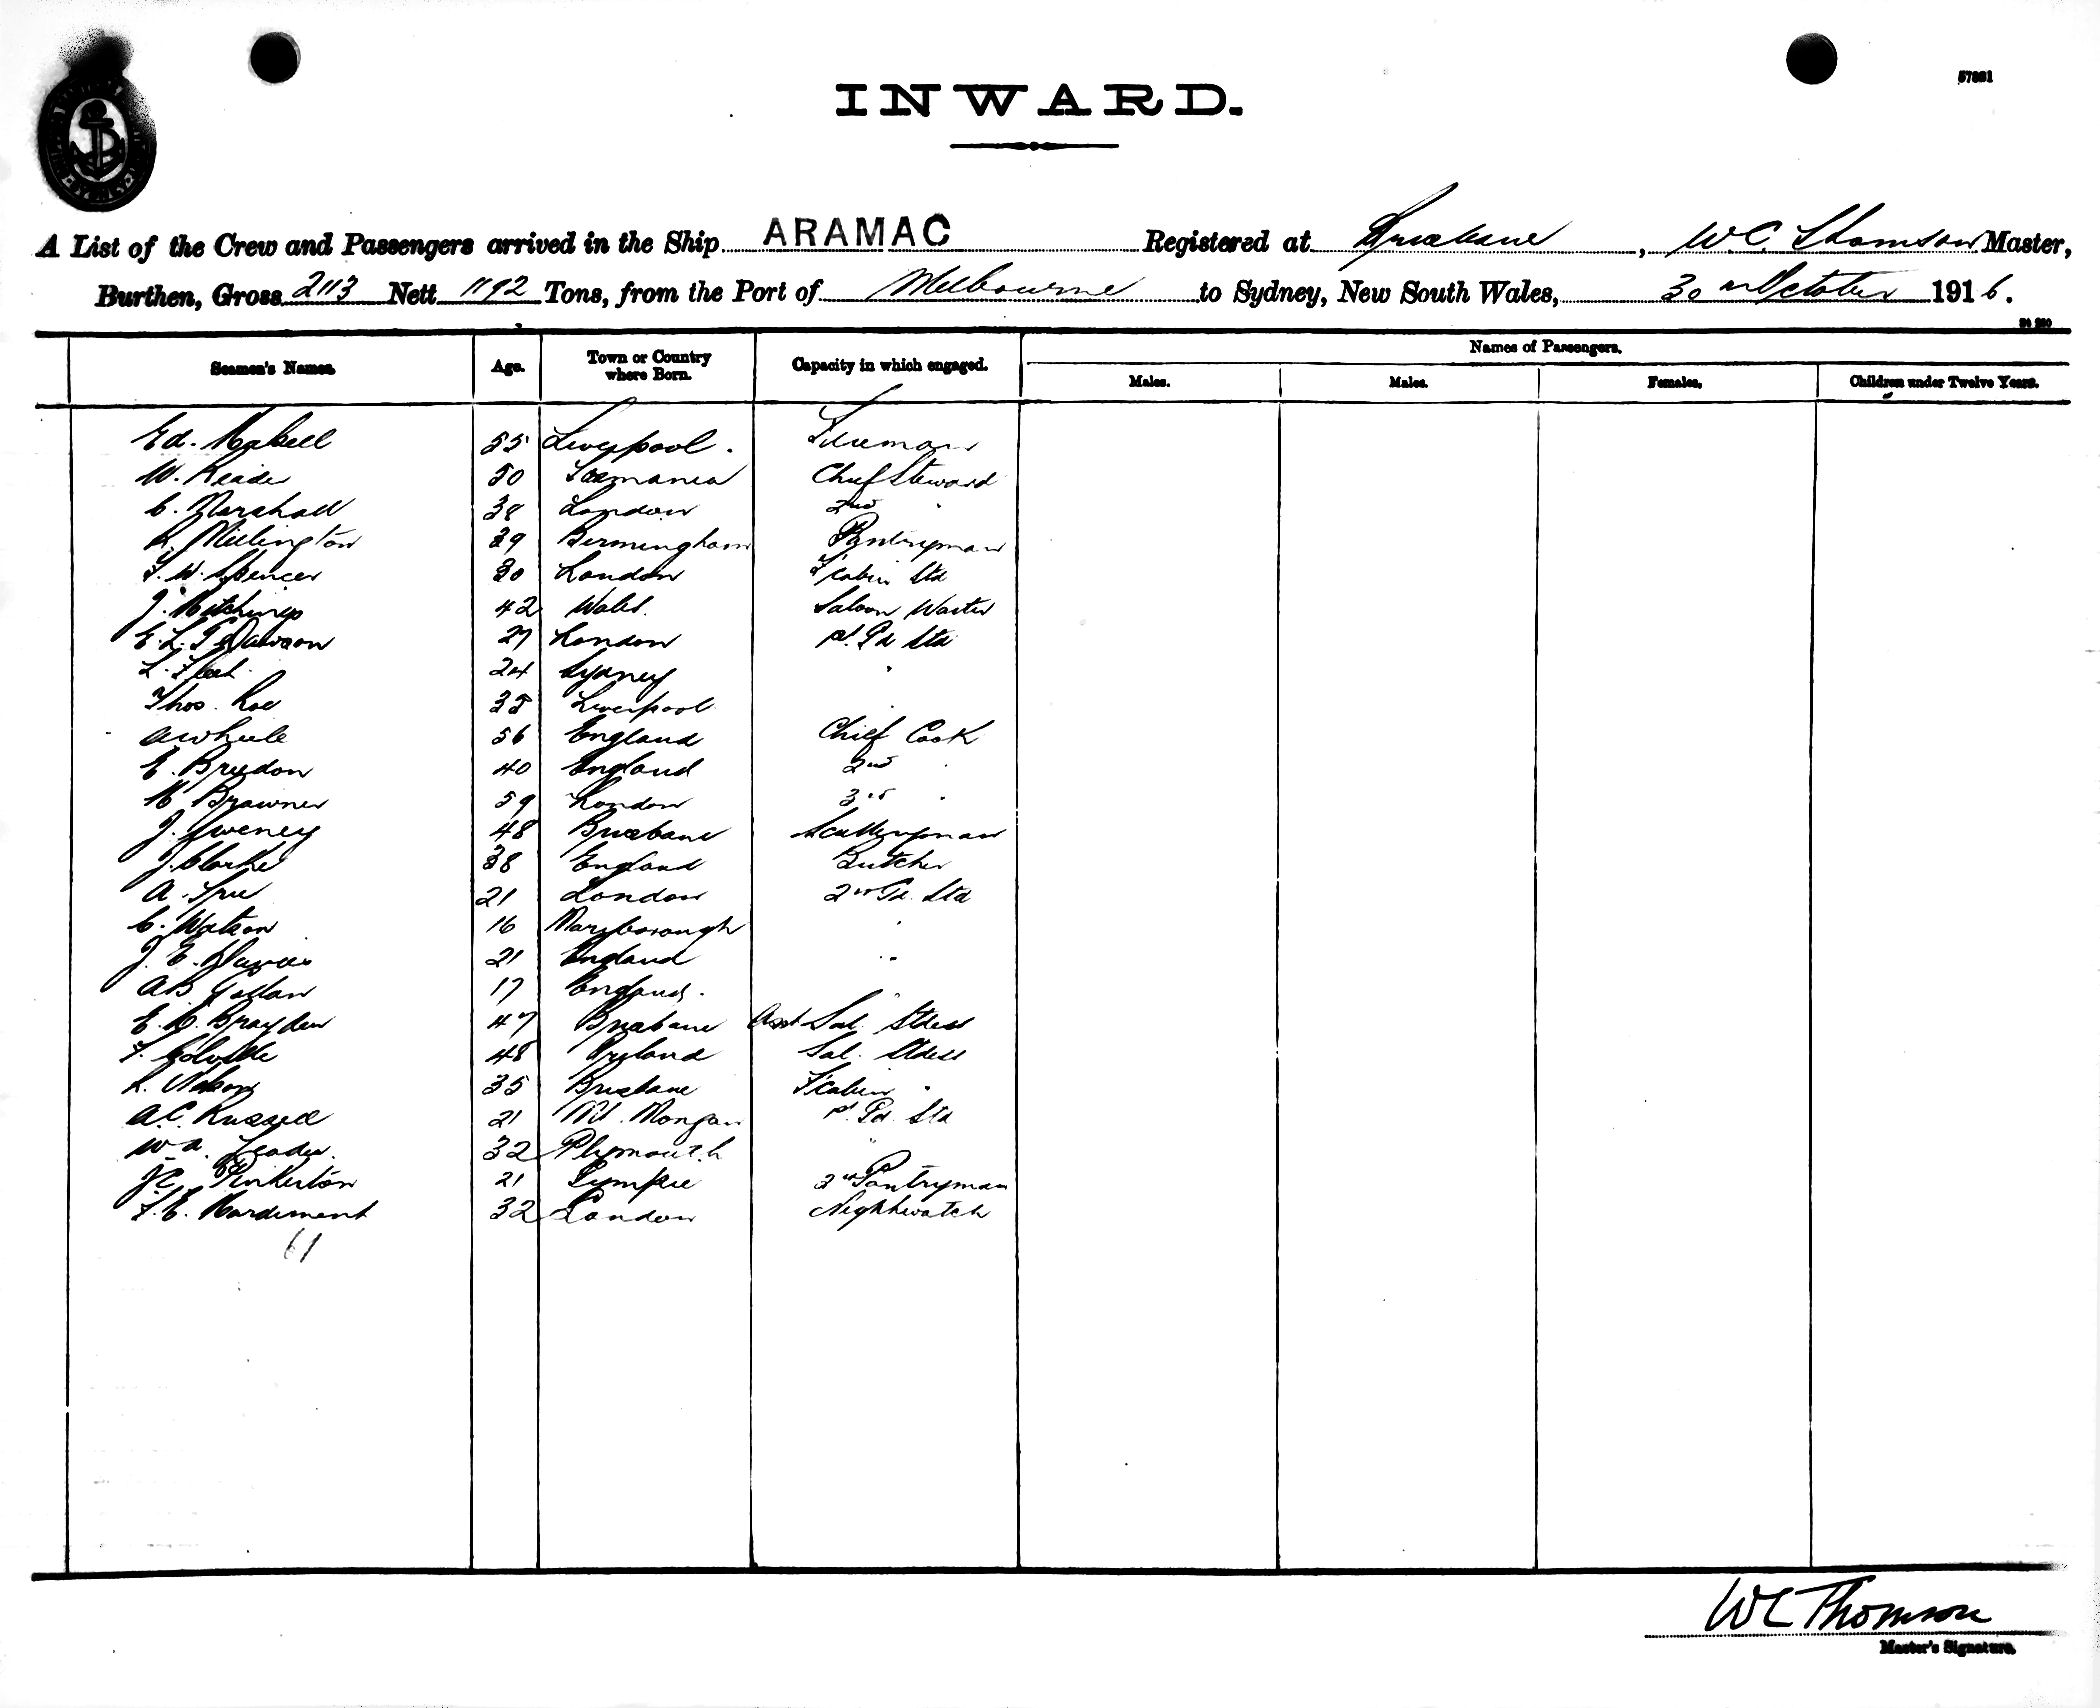 57681
INWARD.
A List of the Crew and Passengers arrived in the Ship ARAMAC Registered at Brisbane, W.C. Thomson Master,
Burthen, Gross 2113 Nett 1192 Tons, from the Port of Melbourne to Sydney, New South Wales, 30 October 1916.
Seamen's Names. Age. Town or Country where Born. Capacity in which engaged. Names of Passengers.
Males. Males. Females. Children under Twelve Years.
Ed. 55 Liverpool. Fireman
W. Reader 50 Tasmania Chief Steward
C. Marshall 38 London 2nd "
Millington 39 Birmingham Pantryman
F. W. Spencer 30 London F'cabin Std
J. Hitchings 42 Wales. Saloon Waiter
E. L. Dawson 27 London Std
L. 24 Sydney "
Thos. Roe 35 Liverpool "
A Wheele 56 England Chief Cook
E. Breedon 40 England 2nd "
Brawner 59 London 3rd "
J. Sweney 48 Brisbane Sculleryman
J. Clarke 38 England Butcher
A. 21 London 2nd Std
C. Watson 16 Maryborough "
J. E. Davies 21 England "
AB 17 England. "
E. Brayden 47 Brisbane Asst Sal. Stdess
48 Ireland Sal. Stdess
35 Brisbane F'cabin "
A.C. Russell 21 Mt. Morgan Std
W. A. Leader. 32 Plymouth "
J.C. Pinkerton 21 Gympie 2nd Pantryman
F. E. Hardiment 32 London Nightwatch
61
WC Thomson
Master's Signature.